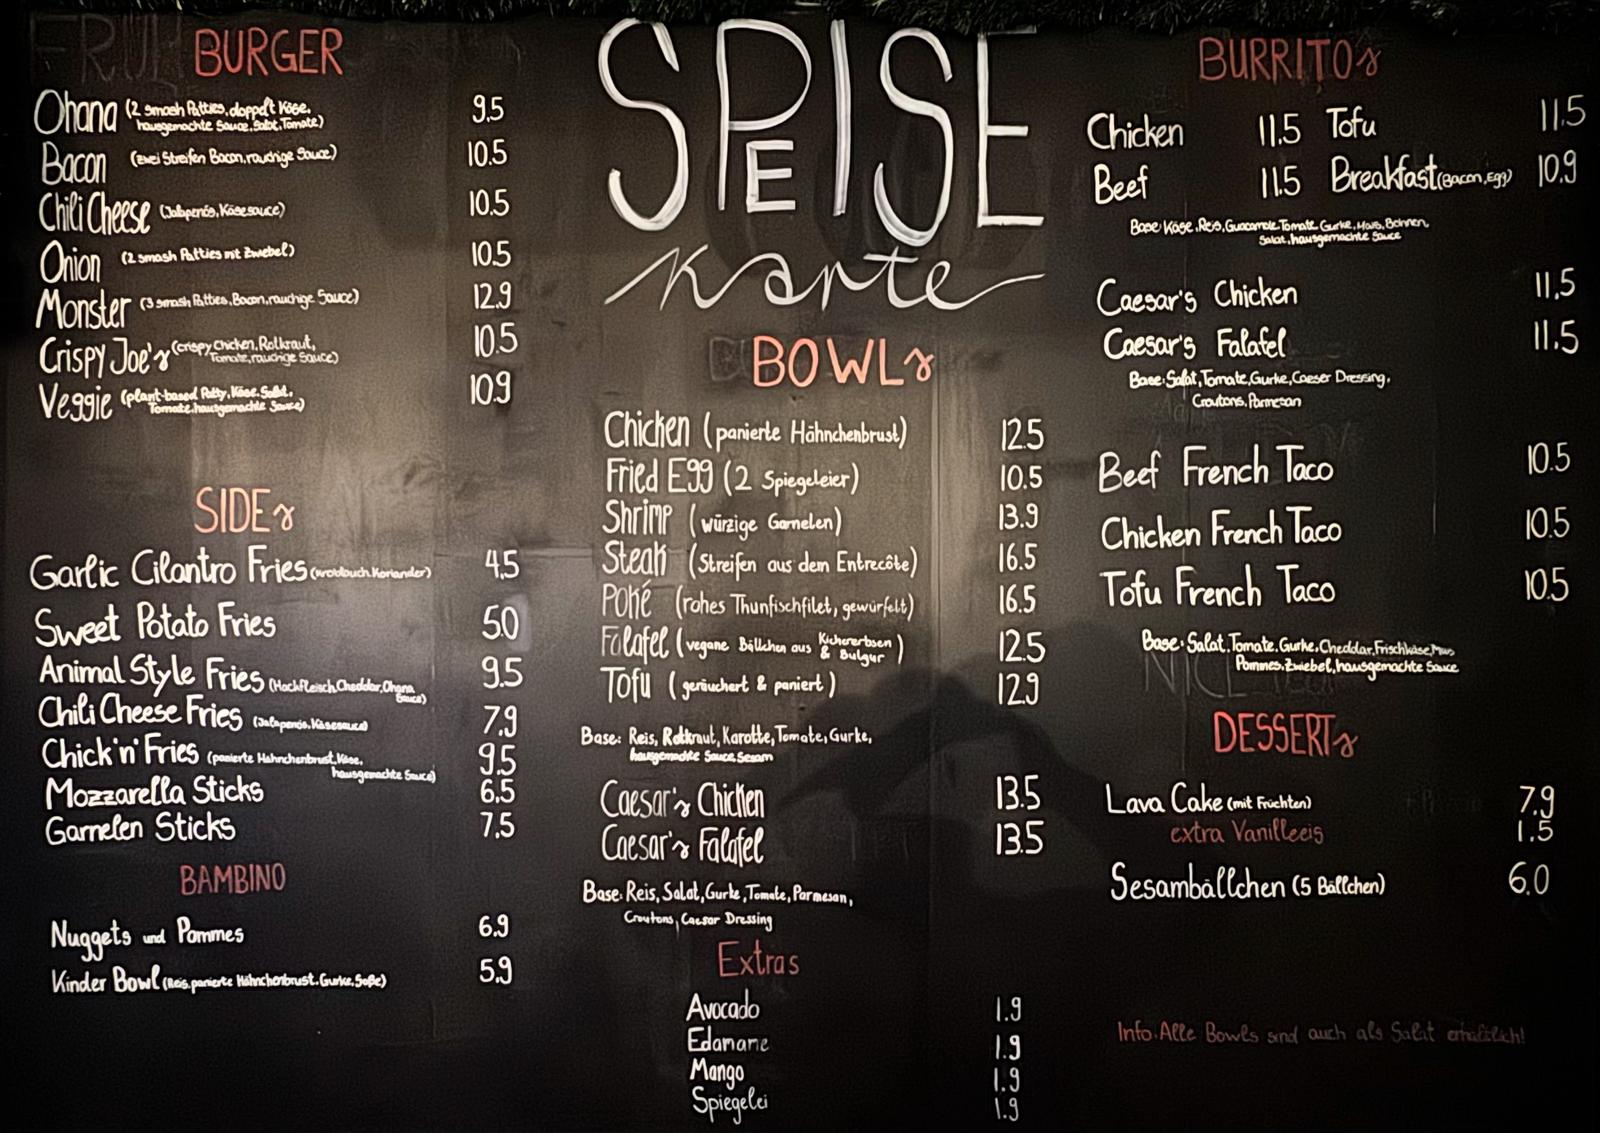 BURGER
Ohana (2 smash Patties, doppelt Käse, 9.5
hausgemachte Sauce, Salat, Tomate)
Bacon (zwei Streifen Bacon, rauchige Sauce) 10.5
Chili Cheese (Jalapenós, Käsesauce) 10.5
Onion (2 smash Patties mit Zwiebel) 10.5
Monster (3 smash Patties, Bacon, rauchige Sauce) 12.9
Crispy Joe's (crispy Chicken, Rotkraut, 10.5
Tomate, rauchige Sauce)
Veggie (plant-based Patty, Käse, Salat, 10.9
Tomate, hausgemachte Sauce)
SIDEs
Garlic Cilantro Fries (Knoblauch, Koriander) 4.5
Sweet Potato Fries 5.0
Animal Style Fries (Hackfleisch, Cheddar, Ohana 9.5
Sauce)
Chili Cheese Fries (Jalapenós, Käsesauce) 7.9
Chick'n' Fries (panierte Hähnchenbrust, Käse, 9.5
hausgemachte Sauce)
Mozzarella Sticks 6.5
Garnelen Sticks 7.5
BAMBINO
Nuggets und Pommes 6.9
Kinder Bowl (Reis, panierte Hähnchenbrust, Gurke, Soße) 5.9
SPEISE
Karte
BOWLs
Chicken (panierte Hähnchenbrust) 12.5
Fried Egg (2 Spiegeleier) 10.5
Shrimp (würzige Garnelen) 13.9
Steak (Streifen aus dem Entrecôte) 16.5
Poké (rohes Thunfischfilet, gewürfelt) 16.5
Falafel (vegane Bällchen aus Kichererbsen & Bulgur) 12.5
Tofu (geräuchert & paniert) 12.9
Base: Reis, Rotkraut, Karotte, Tomate, Gurke,
hausgemachte Sauce, Sesam
Caesar's Chicken 13.5
Caesar's Falafel 13.5
Base: Reis, Salat, Gurke, Tomate, Parmesan,
Croutons, Caesar Dressing
Extras
Avocado 1.9
Edamame 1.9
Mango 1.9
Spiegelei 1.9
BURRITOs
Chicken 11.5 Tofu 11.5
Beef 11.5 Breakfast (Bacon, Egg) 10.9
Base: Käse, Reis, Guacamole, Tomate, Gurke, Mais, Bohnen,
Salat, hausgemachte Sauce
Caesar's Chicken 11.5
Caesar's Falafel 11.5
Base: Salat, Tomate, Gurke, Caeser Dressing,
Croutons, Parmesan
Beef French Taco 10.5
Chicken French Taco 10.5
Tofu French Taco 10.5
Base: Salat, Tomate, Gurke, Cheddar, Frischkäse, Mais
Pommes, Zwiebel, hausgemachte Sauce
DESSERTs
Lava Cake (mit Früchten) 7.9
extra Vanilleeis 1.5
Sesambällchen (5 Bällchen) 6.0
Info: Alle Bowls sind auch als Salat erhältlich!